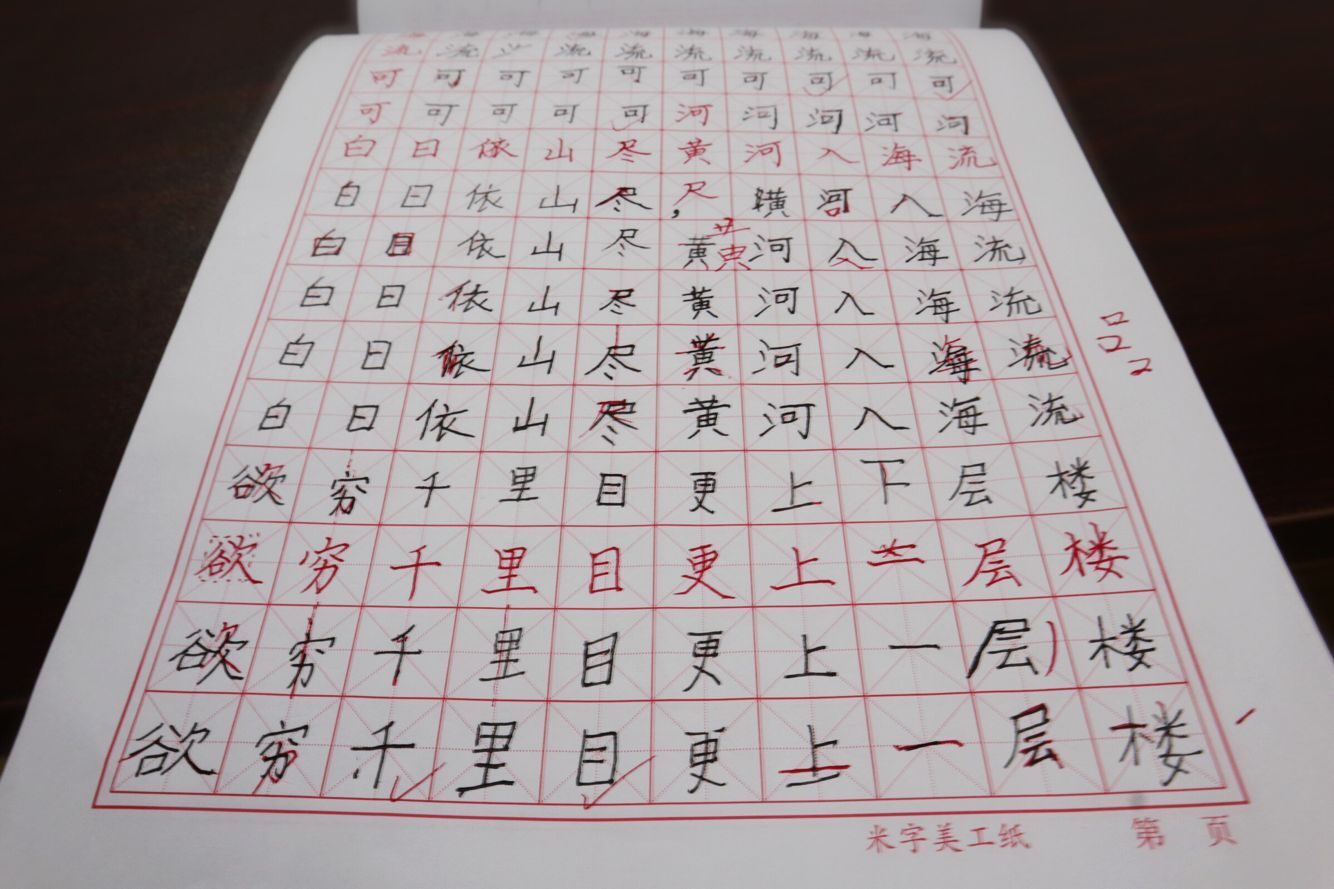 流流流流流流流流流
可可可可可可可可可可
可可可可可河河河河河
白日依山尽黄河入海流
白日依山尽,尺横河入海
白日依山尽黄河入海流
白日依山尽黄河入海流
白日依山尽黄河入海流
白日依山尽黄河入海流
欲穷千里目更上下层楼
欲穷千里目更上一层楼
欲穷千里目更上一层楼
欲穷千里目更上一层楼
米字美工纸 第 页